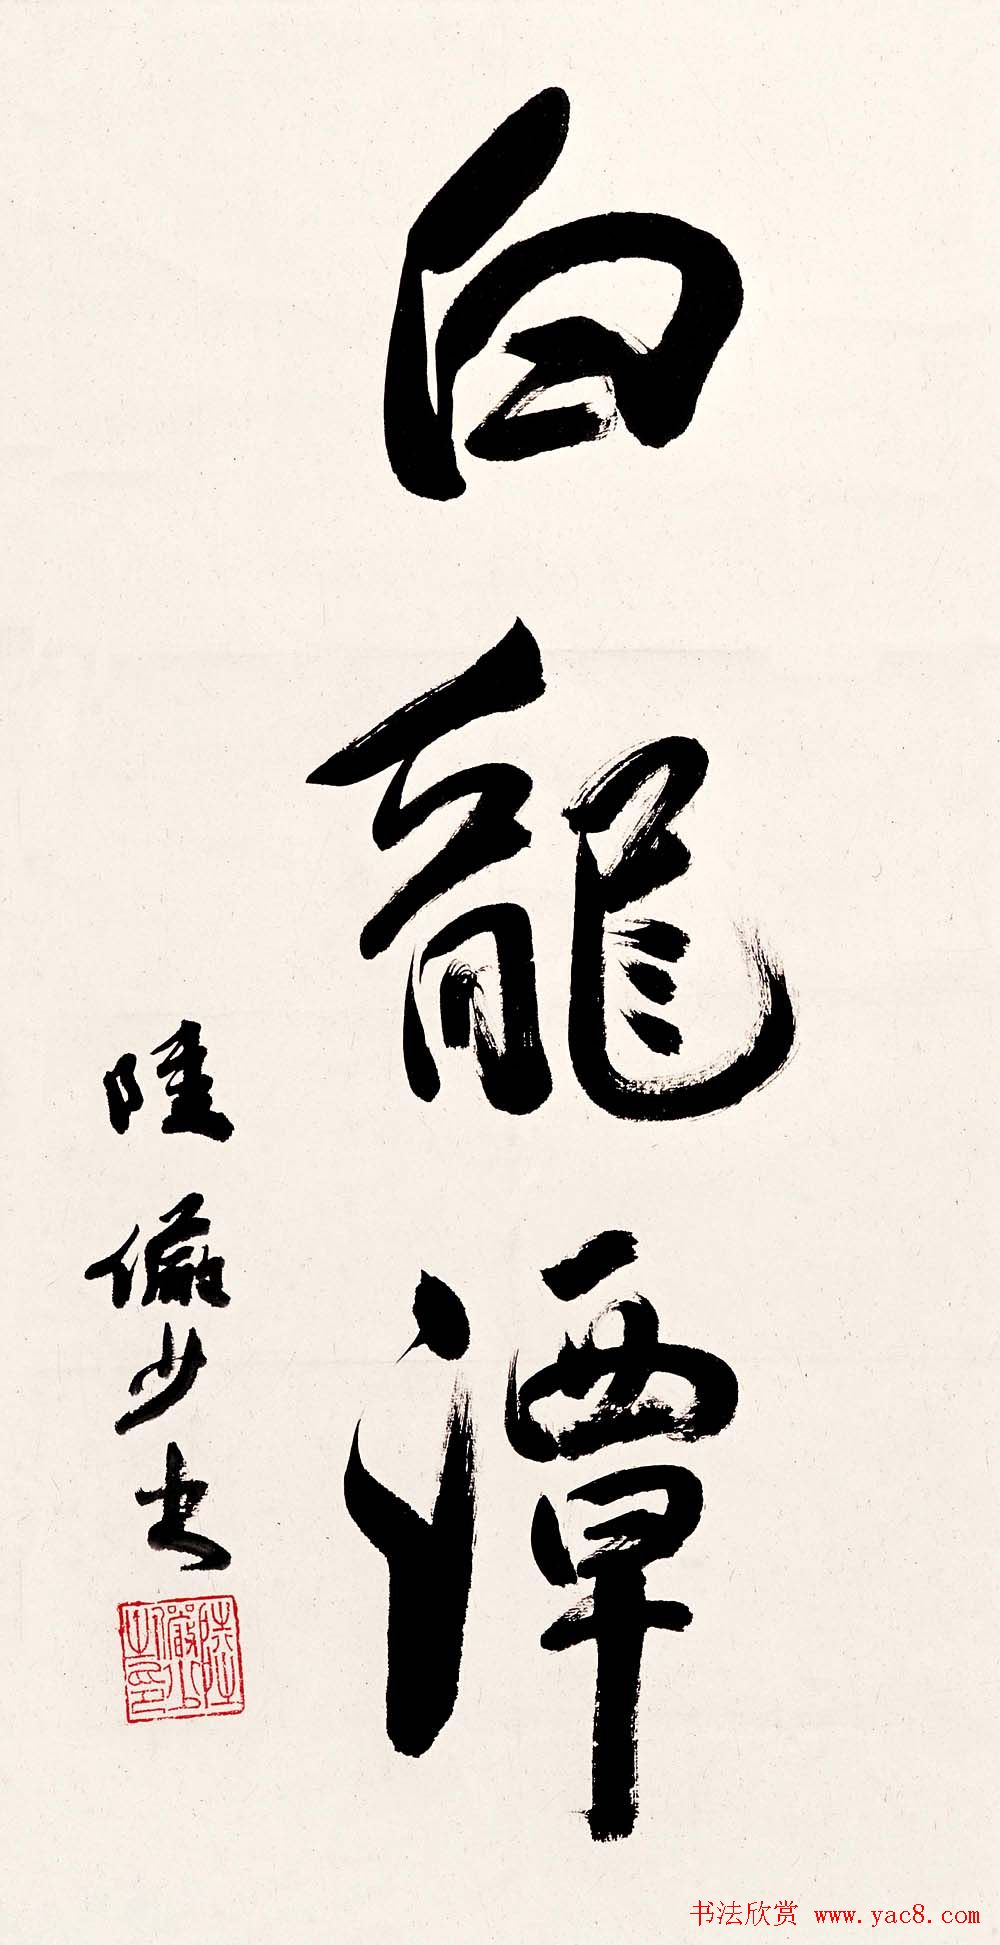 白龍潭
陸儼少書
陸儼少之印
书法欣赏 www.yac8.com